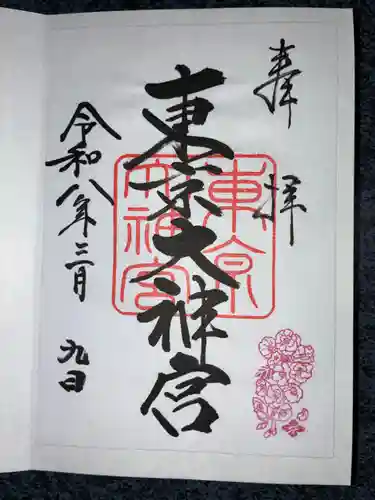 奉拝
東京大神宮
東京
大神宮
令和八年三月九日